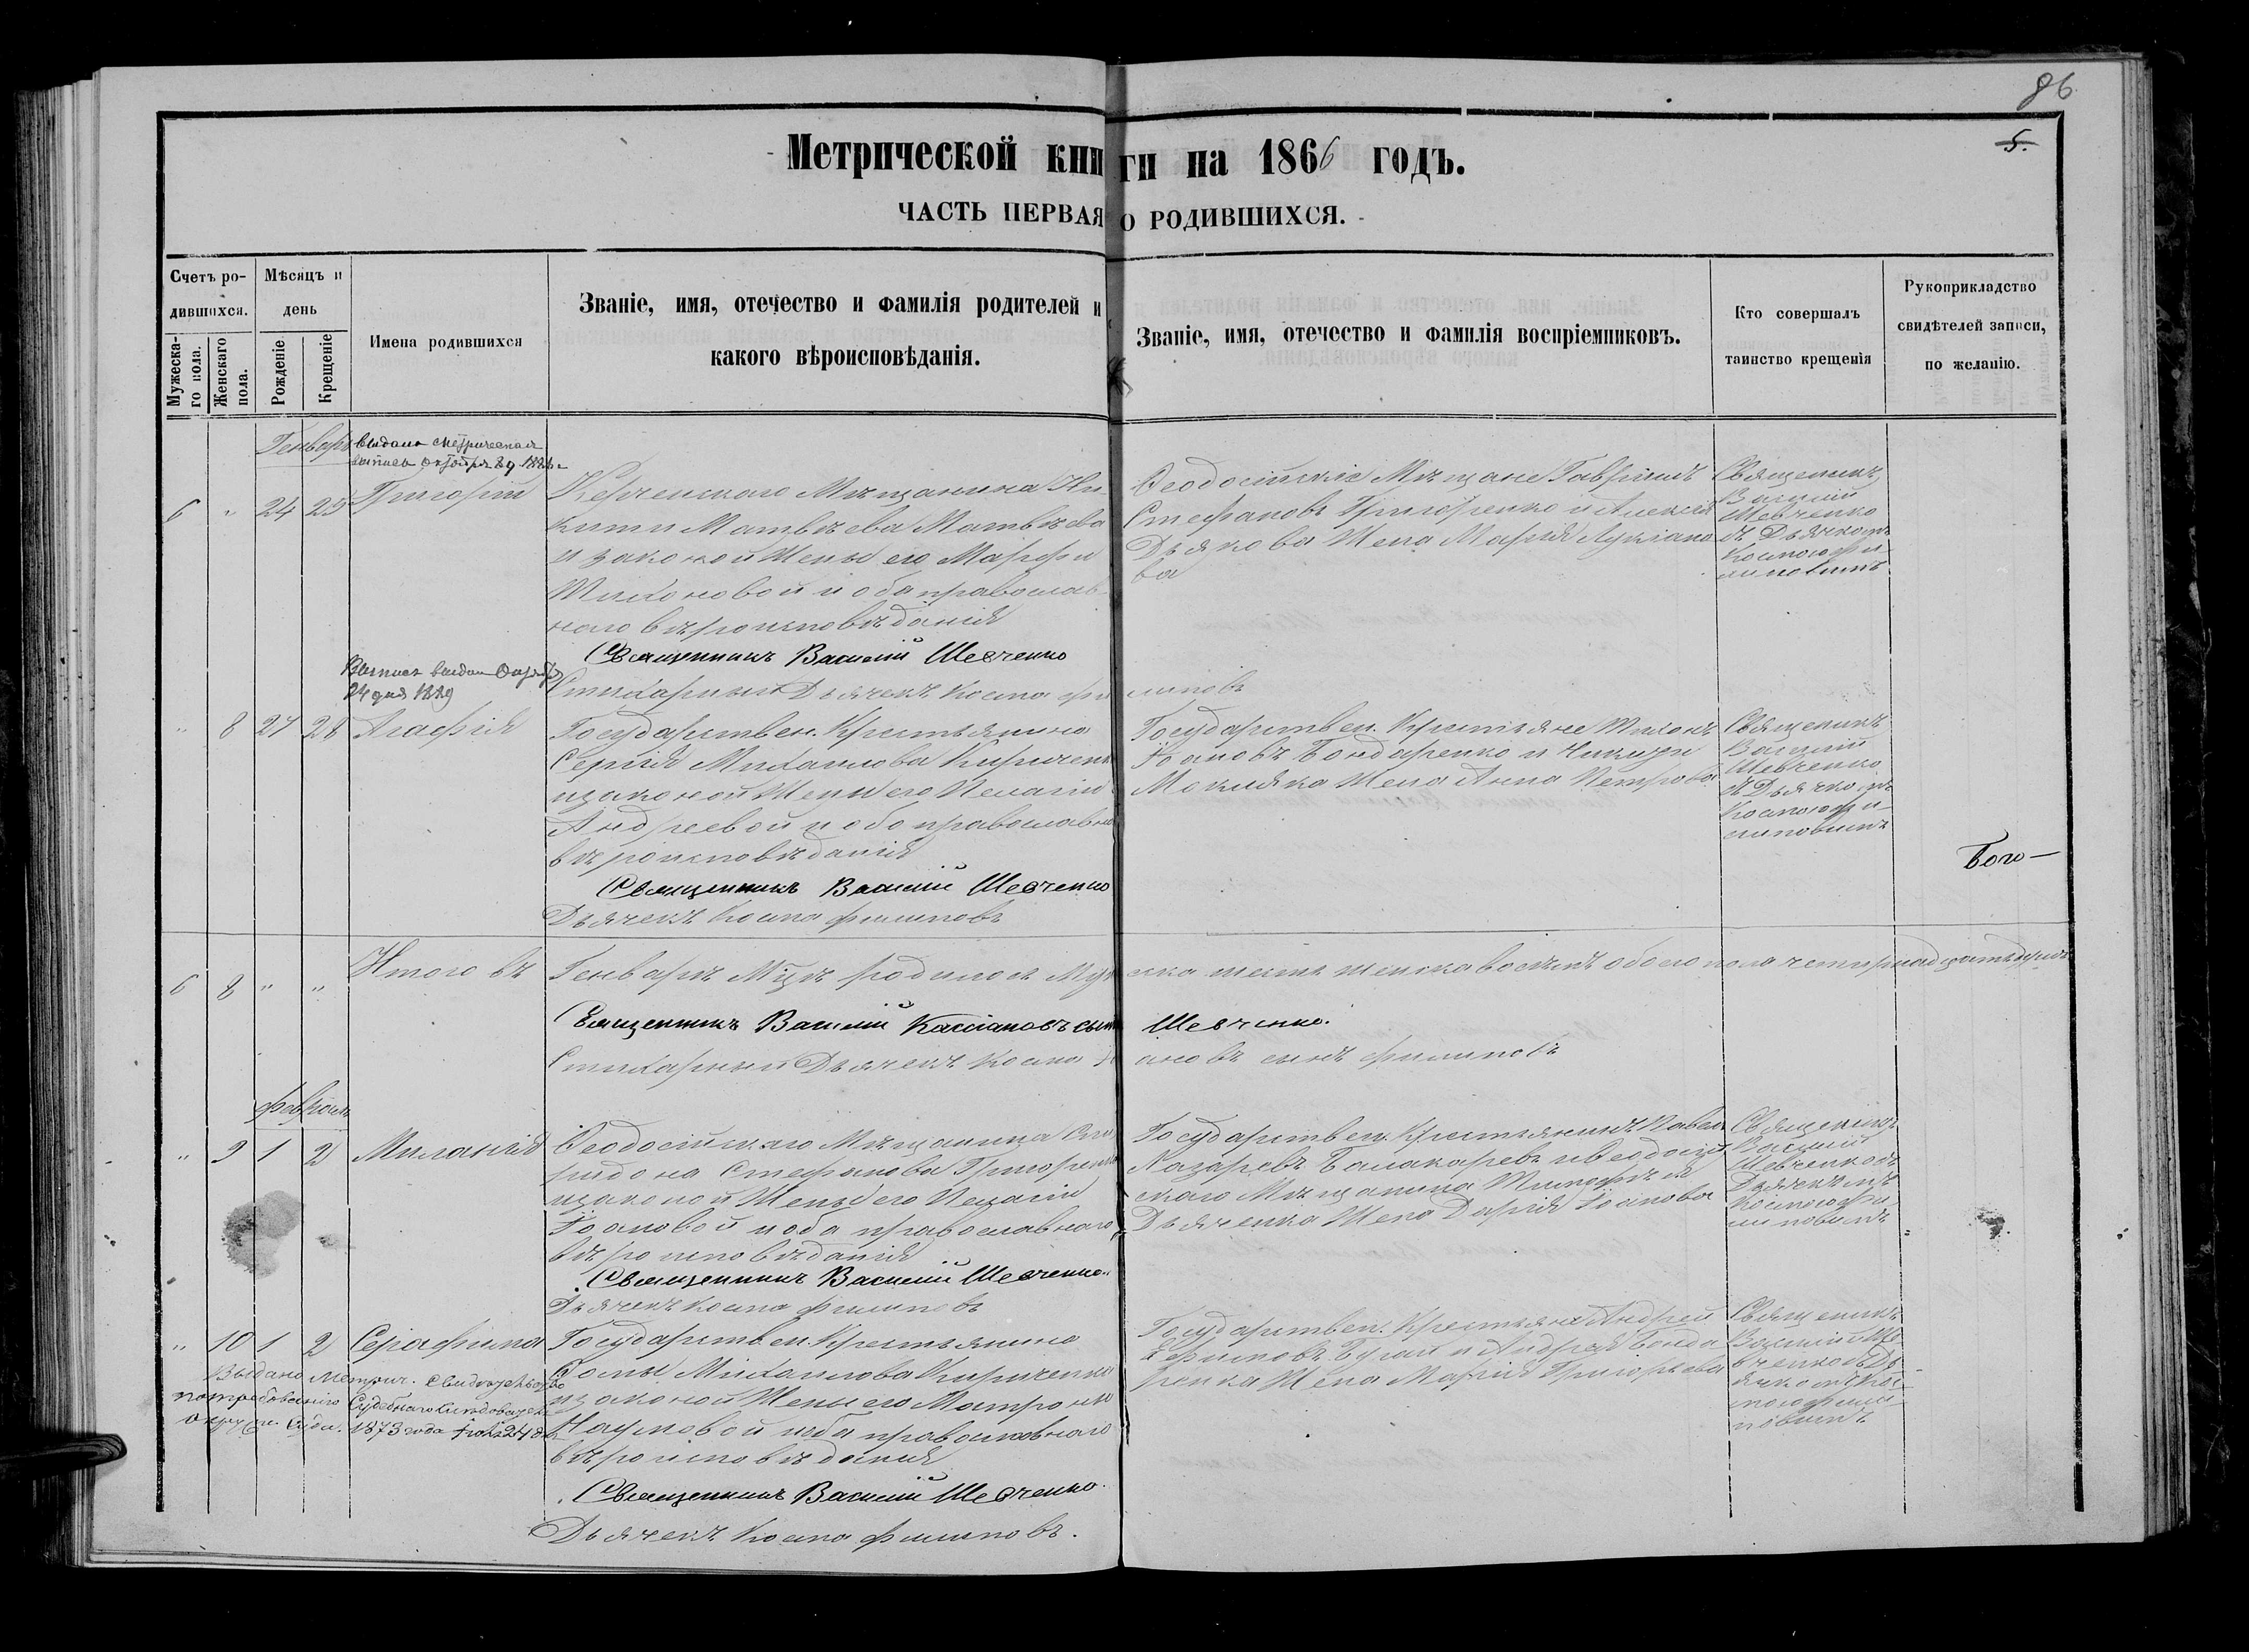 86
5.
Метрической книги на 1866 годъ.
ЧАСТЬ ПЕРВАЯ О РОДИВШИХСЯ.
Счетъ ро-
дившихся.
Мужеска-
го пола.
Женскаго
пола.
Мѣсяцъ и
день
Рожденіе
Крещеніе
Имена родившихся
Званіе, имя, отечество и фамилія родителей и
какого вѣроисповѣданія.
Званіе, имя, отечество и фамилія воспріемниковъ.
Кто совершалъ
таинство крещенія
Рукоприкладство
свидѣтелей записи,
по желанію.
Генварь
выдана метрическая
выпись октября 29
6 " 24 25 Григорій
Керченскаго Мѣщанина Ни-
киты Матвѣева Матвѣева
и законной Жены его Марфы
Тихоновой и оба православ-
наго вѣроисповѣданія
Священникъ Василій Шевченко
Стихарный Дьячекъ Косма Филиповъ
Феодосійскіе Мѣщане Гавріилъ
Стефановъ Григоренко и Алексія
Дьякова Жена Марія Лукіано
ва
Священикъ
Василій
Шевченко
съ Дьячкомъ
Космою Фи-
липовымъ
Выпись выдан
24 дня 1889
" 8 27 28 Агафія
Государствен. Крестьянина
Сергія Михаилова Кириченк
изаконой Жены его Пелагіи
Андреевой и обо православно
вѣроисповѣданія
Священникъ Василій Шевченко
Дьячекъ Косма Филиповъ
Государствен. Крестьяне Тихонъ
Іоановъ Бондаренко и
Мокляка Жена Анна Петрова
Священикъ
Василій
Шевченко
съ Дьячкомъ
Космою Фи-
липовымъ
Бого-
6 8 " " Итого въ Генварѣ М-цѣ родилось Мужеска шесть женска восемь обоего пола четырнадцать душъ
Священникъ Василій Кассіановъ сынъ Шевченко.
Стихарный Дьячекъ Косма ановъ сынъ Филиповъ
Февраль
" 9 1 2 Миланія
Феодосійскаго Мѣщанина Спи
ридона Стефанова Григоренко
изаконой Жены его Пелагіи
Іоановой и оба православнаго
вѣроисповѣданія
Священникъ Василій Шевченко.
Дьячекъ Косма Филиповъ
Государствен. Крестьянинъ Павелъ
Лазаревъ Балакаревъ и Феодосій
скаго Мѣщанина Тимофѣя
Дьяченка Жена Дарія Іоанова
Священикъ
Василій
Шевченко съ
Дьячкомъ
Космою Фи
липовымъ
" 10 1 2 Серафима
Государствен. Крестьянина
Космы Михаилова Кириченка
изаконой Жены его Матроны
Наумовой иоба православнаго
вѣроисповѣданія
Священникъ Василій Шевченко.
Дьячекъ Косма Филиповъ.
Государствен. Крестьяне Андрей
Ефимовъ Бугай и Андрея Бонда
ренка Жена Марія Григорьева
Священикъ
Василій Ше
вченко съ Дь
ячкомъ Ко
смою Фили-
повымъ
Выдано Метрич. Свидѣтельство
потребованію Судебнаго
суда. 1873 года